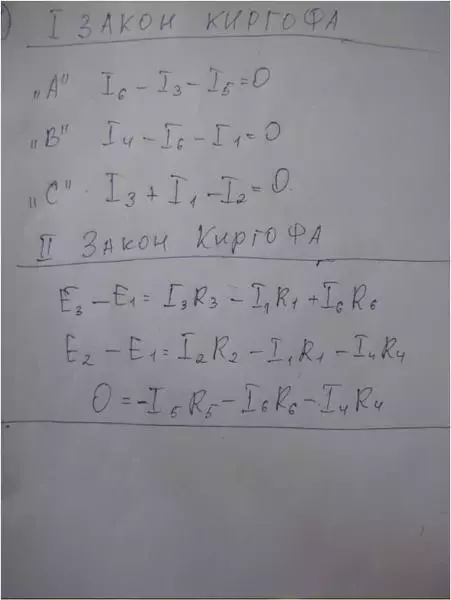 ) I ЗАКОН КИРГОФА
„А" I₆ - I₃ - I₅ = 0
„В" I₄ - I₆ - I₁ = 0
„С" I₃ + I₁ - I₂ = 0.
II ЗАКОН КИРГОФА
E₃ - E₁ = I₃R₃ - I₁R₁ + I₆R₆
E₂ - E₁ = I₂R₂ - I₁R₁ - I₄R₄
0 = -I₅R₅ - I₆R₆ - I₄R₄